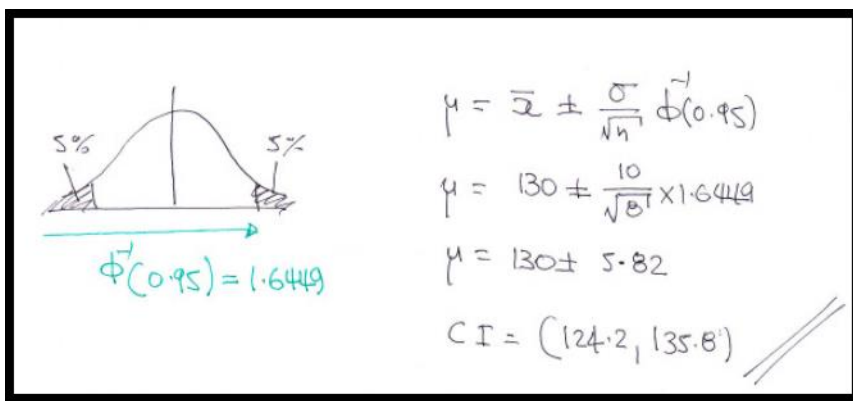 5%
5%
Φ⁻¹(0.95) = 1.6449
μ = x̄ ± σ/√n Φ⁻¹(0.95)
μ = 130 ± 10/√8 × 1.6449
μ = 130 ± 5.82
CI = (124.2, 135.8)